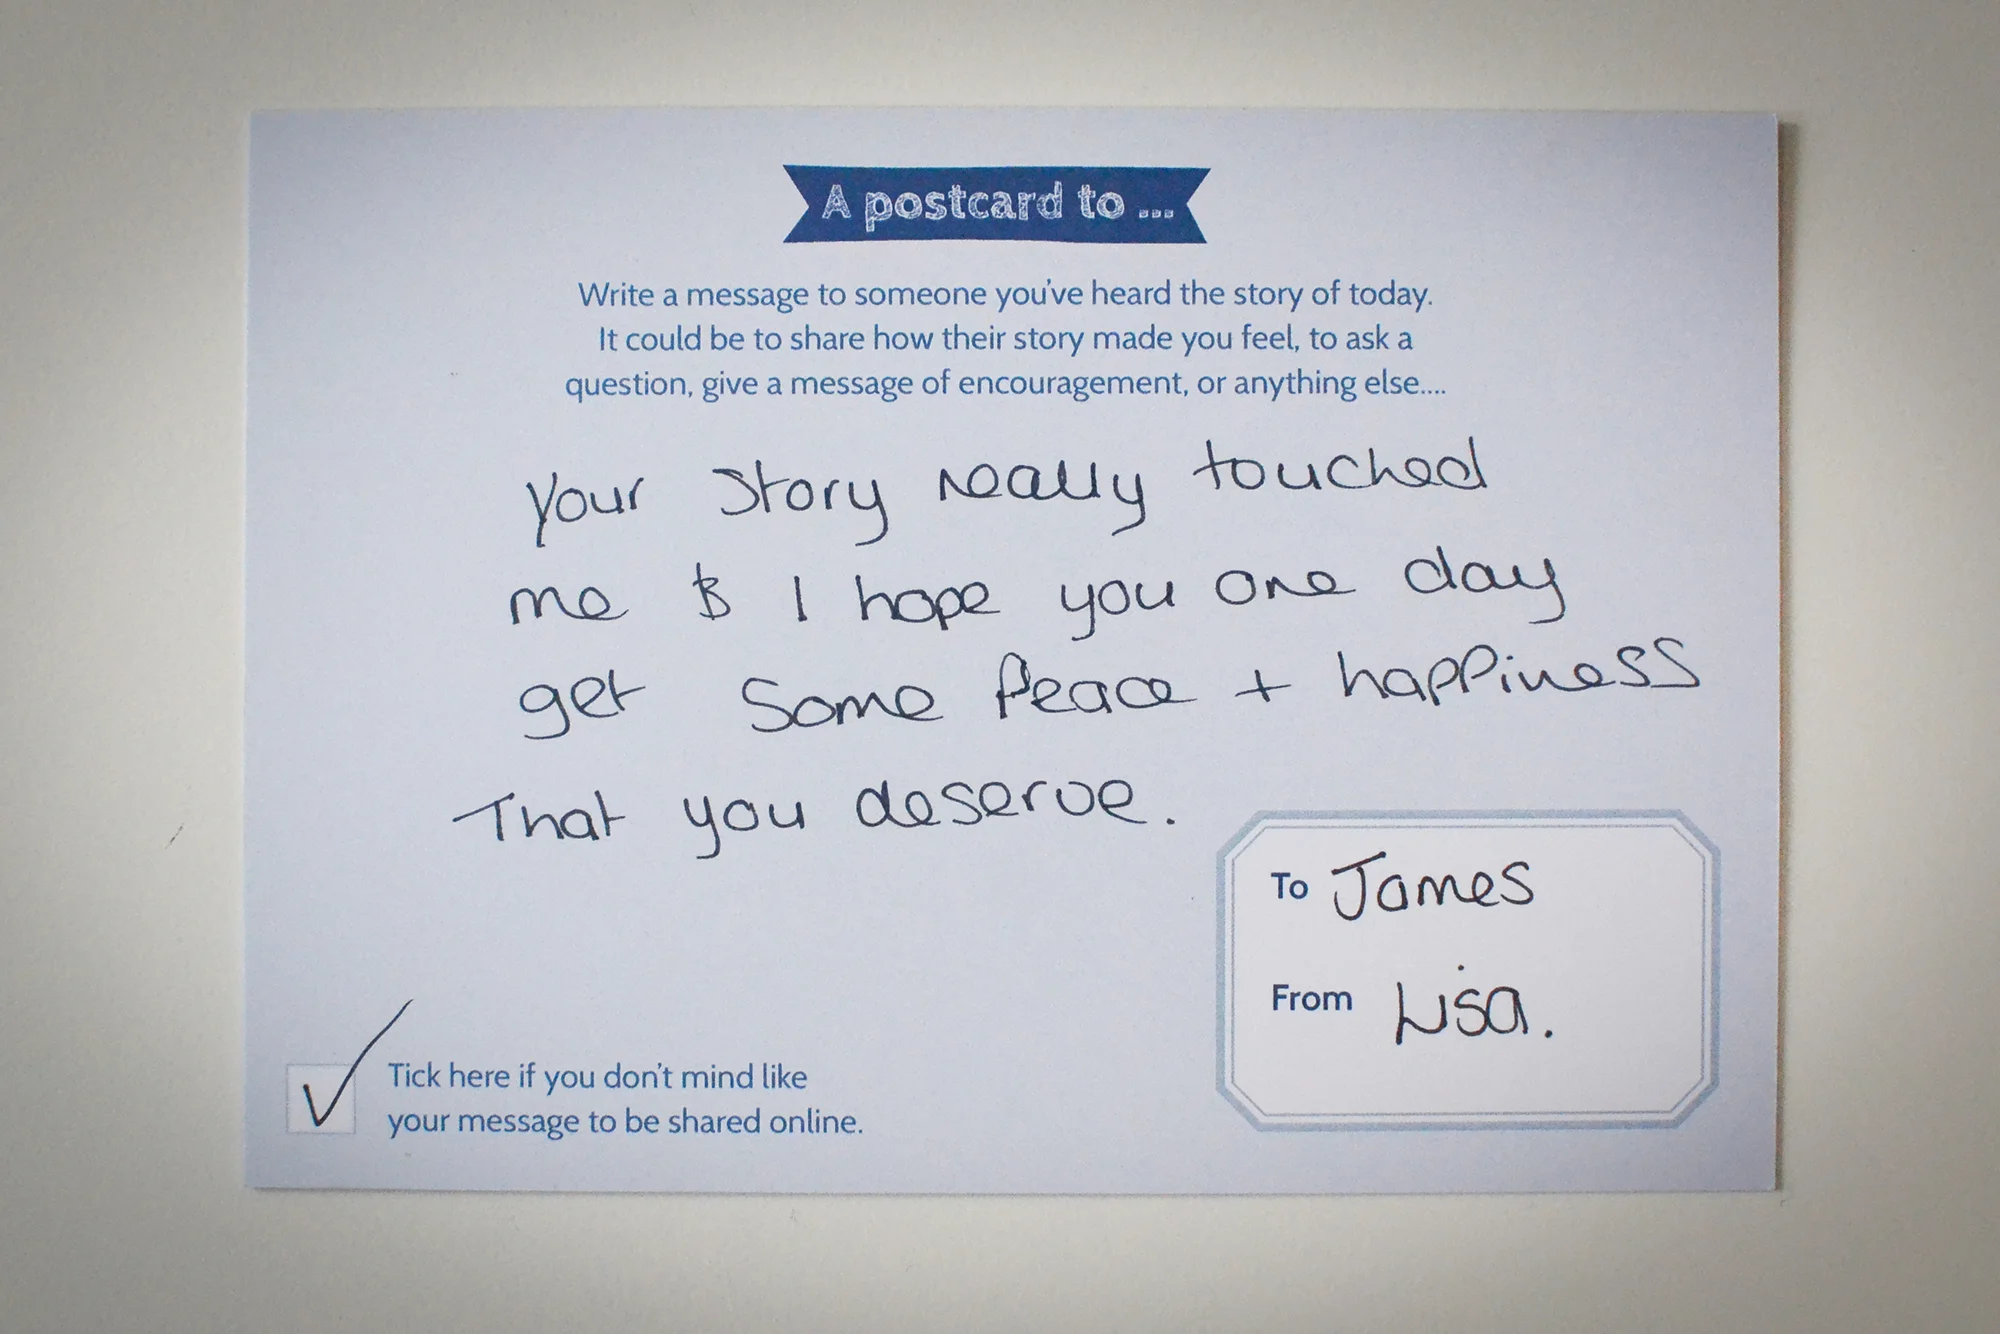 A postcard to ...
Write a message to someone you've heard the story of today.
It could be to share how their story made you feel, to ask a
question, give a message of encouragement, or anything else....
Your Story really touched
me & I hope you one day
get Some Peace + happiness
That you deserve.
To James
From Lisa.
Tick here if you don't mind like
your message to be shared online.